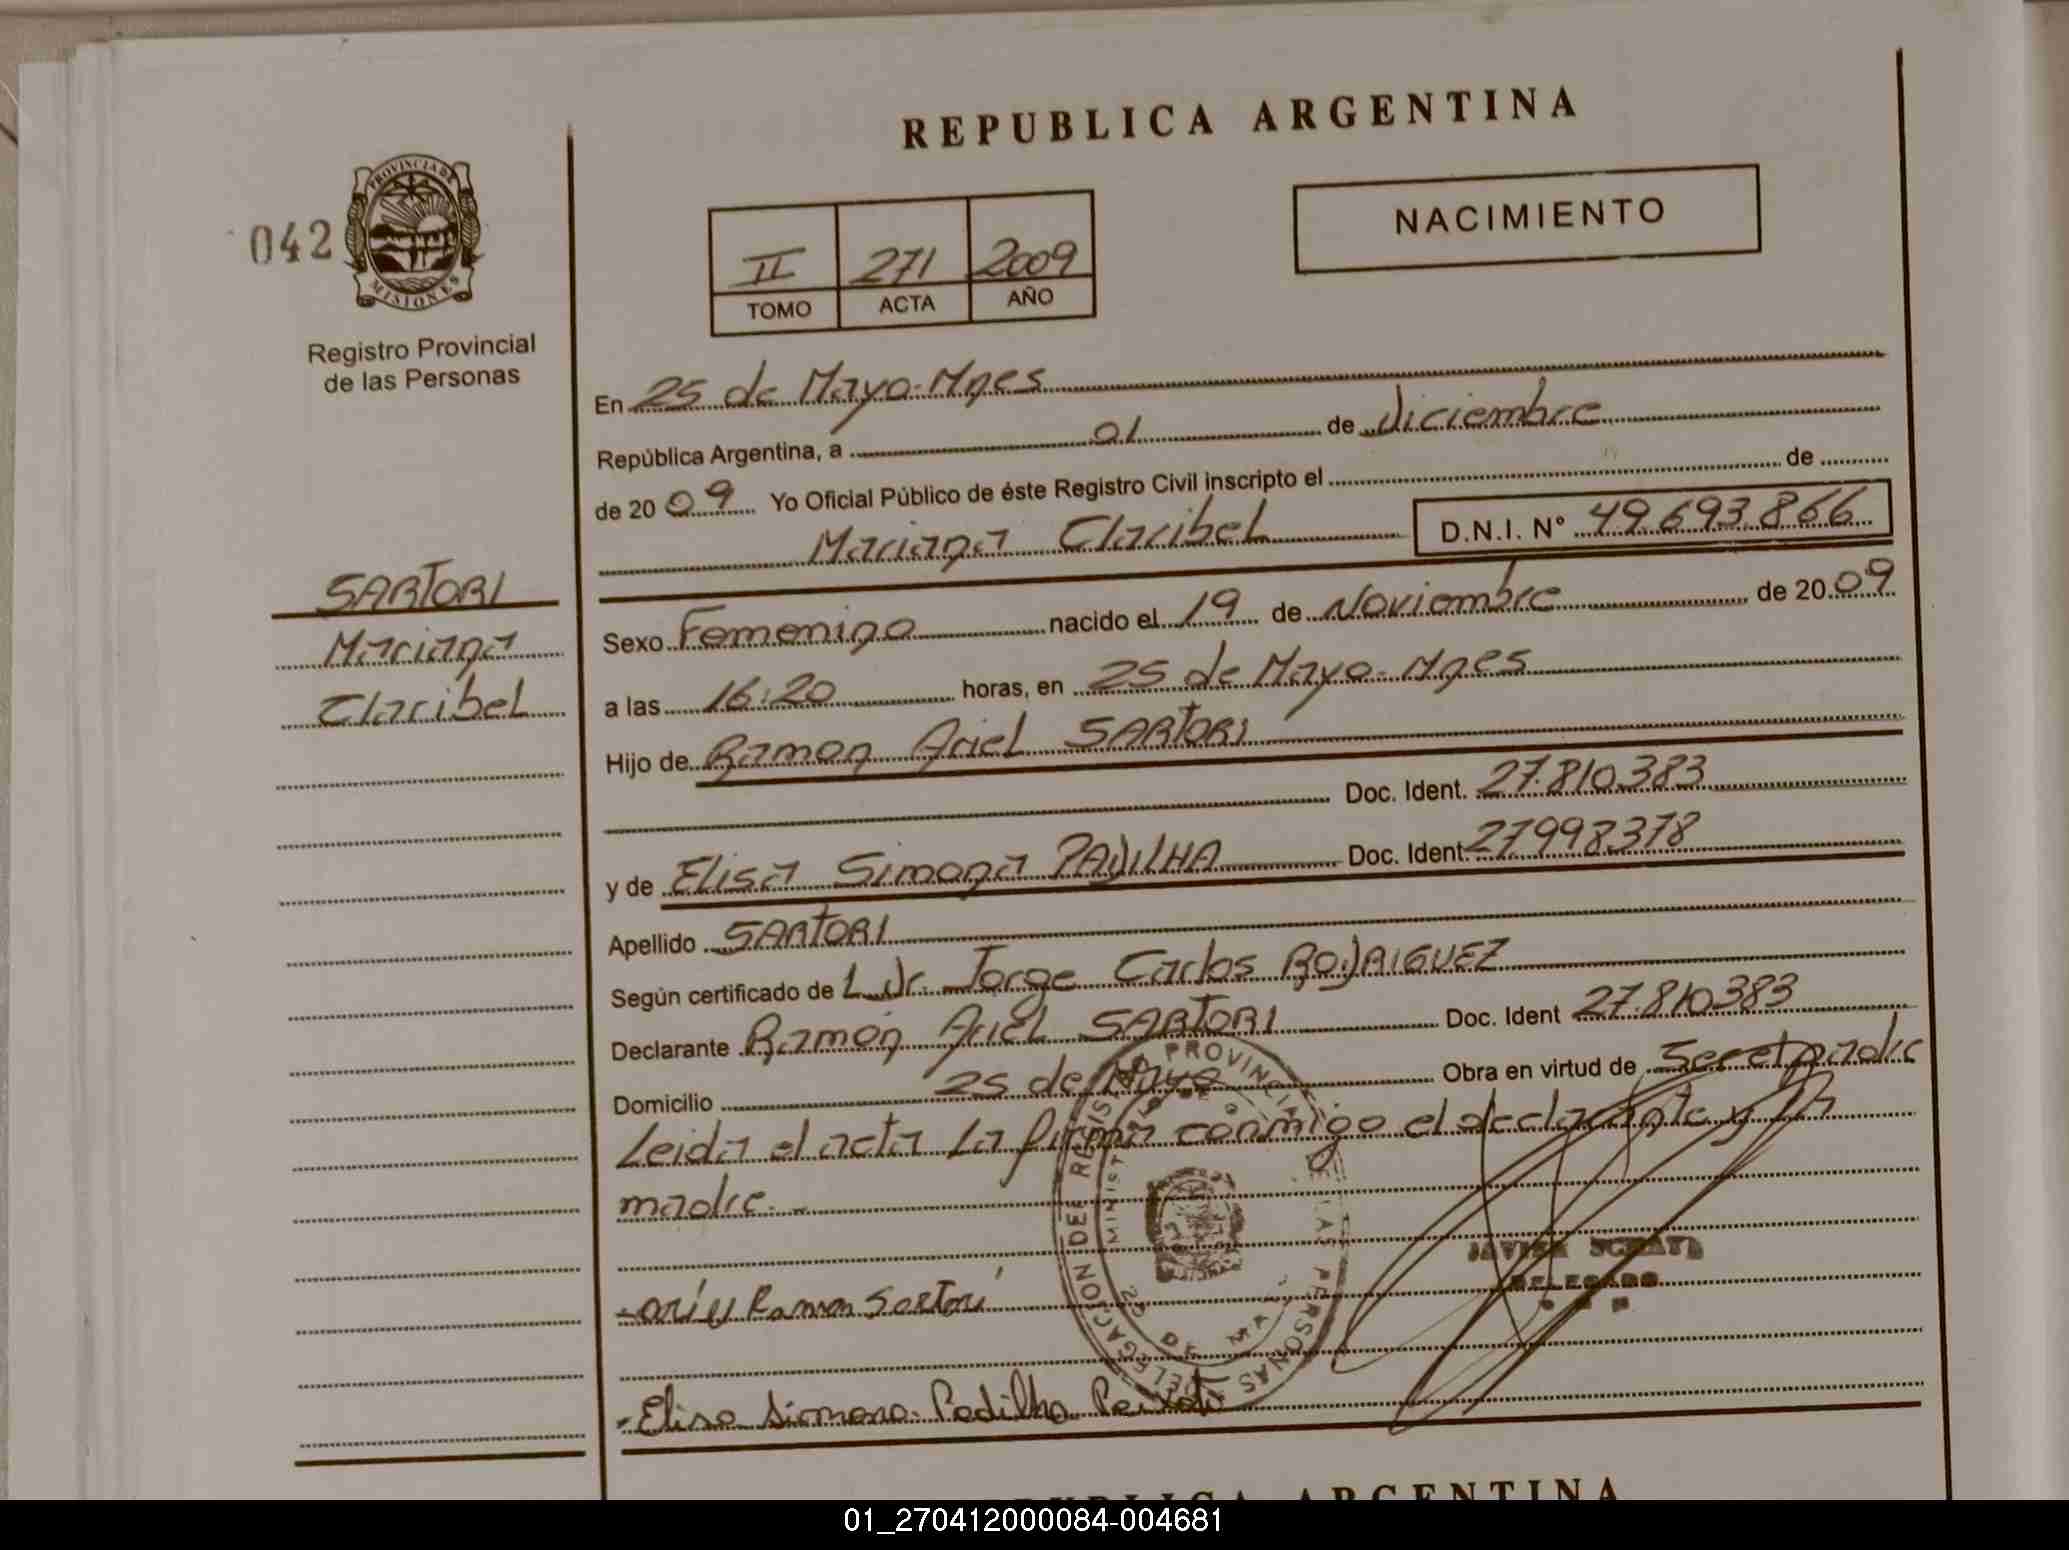 REPUBLICA ARGENTINA
042
PROVINCIA DE
MISIONES
Registro Provincial
de las Personas
II 271 2009
TOMO ACTA AÑO
NACIMIENTO
En 25 de Mayo-Mnes
República Argentina, a 01 de diciembre
de 2009 Yo Oficial Público de éste Registro Civil inscripto el de
Mariana Claribel D.N.I. N° 49.693.866
SARTORI
Mariana
Claribel
Sexo Femenino nacido el 19 de Noviembre de 2009
a las 16:20 horas, en 25 de Mayo-Mnes
Hijo de Ramon Ariel SARTORI
Doc. Ident. 27.810.383
y de Elisa Simona PADILHA Doc. Ident. 27998378
Apellido SARTORI
Según certificado de L Dr. Jorge Carlos RODRIGUEZ
Declarante Ramón Ariel SARTORI Doc. Ident 27.810.383
Domicilio 25 de Mayo Obra en virtud de Ser el padre
Leida el acta la firma conmigo el declarante y la
madre.-
DELEGACION DEL REGIS PROVINCIA DE LAS PERSONAS
JAVIER
DELEGADO
Ramon Sartori
Elisa Simona Padilha
REPUBLICA ARGENTINA
01_270412000084-004681